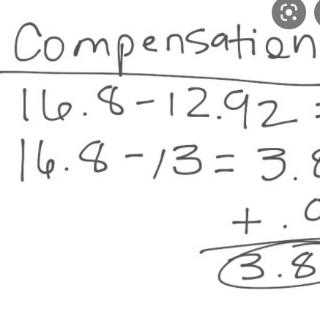 Compensation
16.8-12.92 =
16.8-13 = 3.8
+ .0
3.8